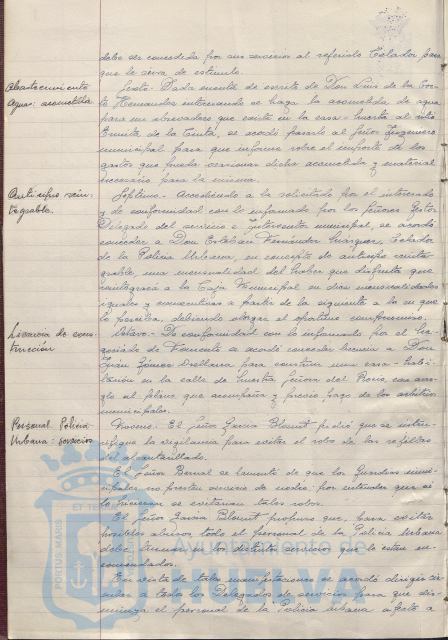 debe ser concedida por sus servicios al referido Celador para
que le sirva de estímulo.
Abastecimiento
Agua: acometida
Sexto: Dada cuenta de escrito de Don Luis de la Cor-
te Hernandez interesando se haga la acometida de agua
para un abrevadero que existe en la casa-huerta al sitio
Ermita de la Cinta, se acordó pasarlo al Señor Ingeniero
municipal para que informe sobre el importe de los
gastos que pueda ocasionar dicha acometida y material
necesario para la misma.
Anticipo rein-
tegrable.
Septimo: Accediendo a lo solicitado por el interesado
y de conformidad con lo informado por los Señores Gestor
Delegado del servicio e Interventor municipal, se acordó
conceder a Don Esteban Fernández Márquez, Celador
de la Policía Urbana, en concepto de anticipo reinte-
grable, una mensualidad del haber que disfruta que
reintegrará a la Caja Municipal en diez mensualidades
iguales y consecutivas a partir de la siguiente a la en que
lo perciba, debiendo otorgar el oportuno compromiso.
Licencia de cons-
trucción
Octavo: De conformidad con lo informado por el Ne-
gociado de Fomento se acordó conceder licencia a Don
Juan Gómez Orellana para construir una casa-habi-
tación en la calle de Nuestra Señora del Rocio, con arre-
glo al plano que acompaña y previo pago de los arbitrios
municipales.
Personal Policía
Urbana: servicios
Noveno: El Señor García Blount pidió que se inten-
sifique la vigilancia para evitar el robo de las rejillas
del alcantarillado.
El Señor Bernal se lamenta de que los Guardias muni-
cipales no presten servicio de noche, por entender que si
lo hicieran se evitarían tales robos.
El Señor García Blount propuso que, para evitar
posibles abusos, todo el personal de la Policía Urbana
debe turnar en los distintos servicios que le estan en-
comendados.
En vista de tales manifestaciones se acordó dirigir cir-
cular a todos los Delegados de servicios para que dis-
minuya el personal de la Policía urbana afecto a
PORTUS MARIS
ET TERRAE
Ayuntamiento de
HUELVA